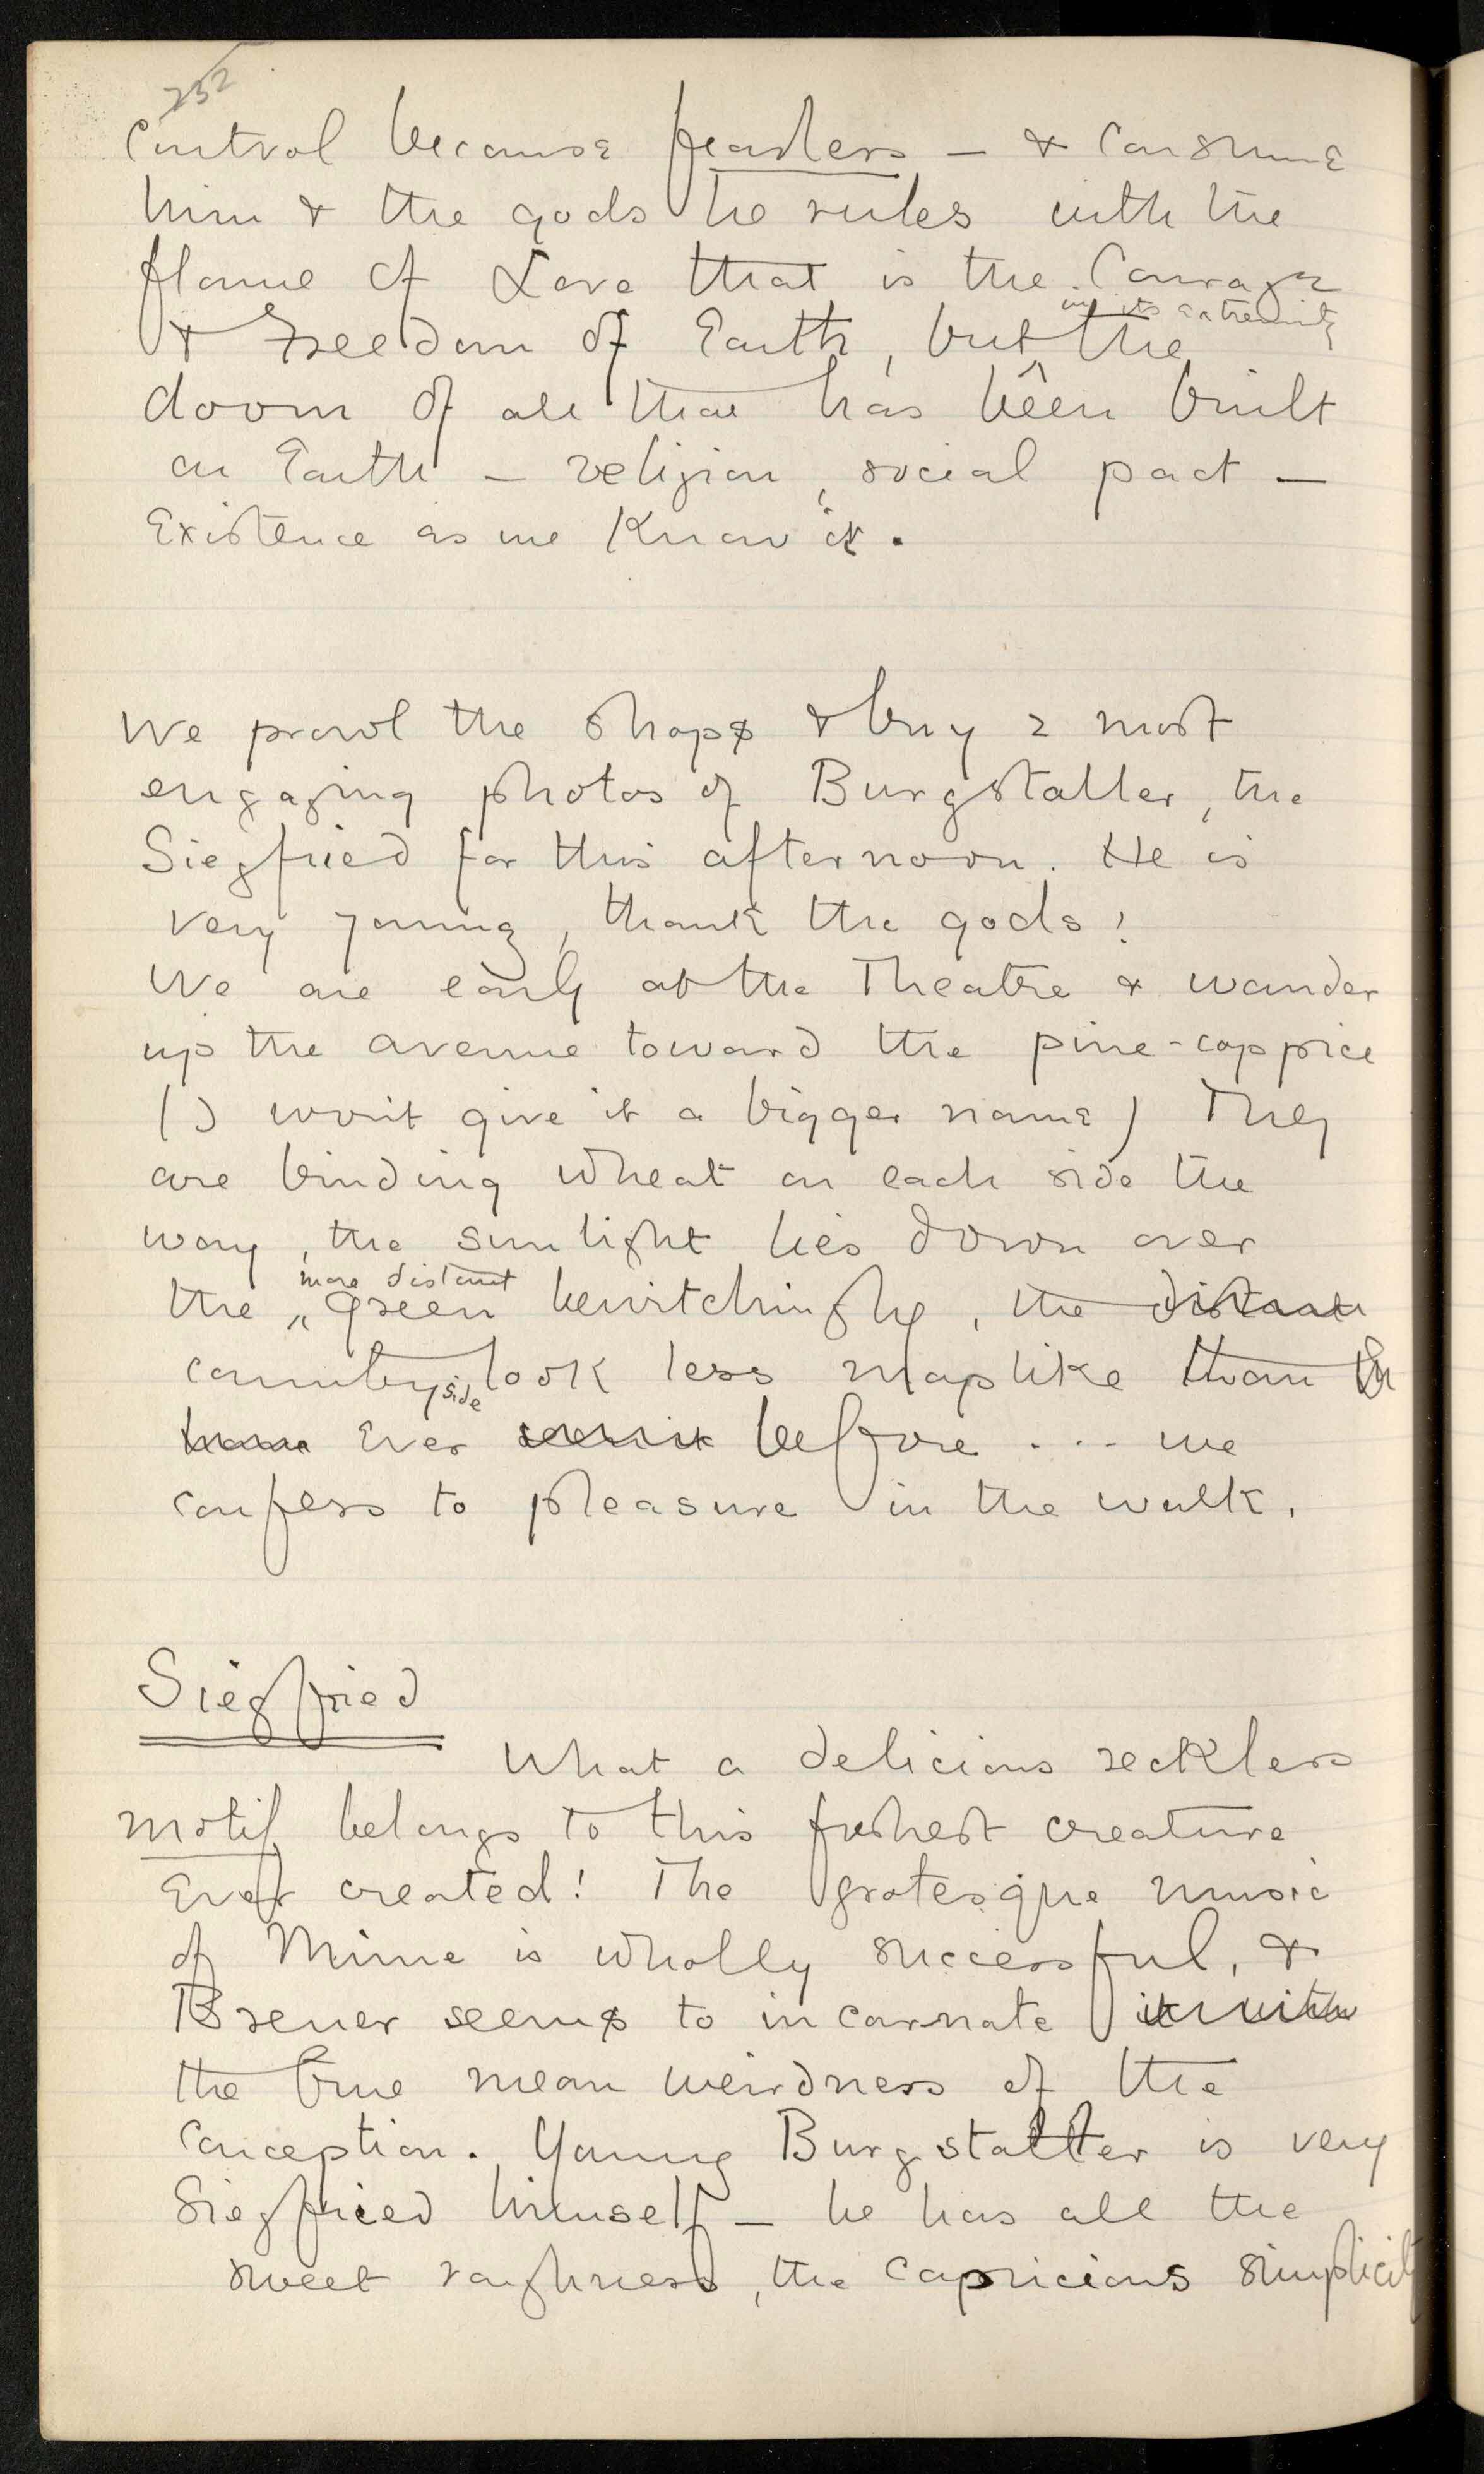 252
control because fearless — & consume
him & the gods he rules with the
flame of Love that is the Courage
in its extremity
& Freedom of Earth, but ^ the
doom of all that has been built
on Earth — religion, social pact —
Existence as we know it.
We prowl the shops & buy 2 most
engaging photos of Burgstaller, the
Siegfried for this afternoon. He is
very young, thank the gods!
We are early at the Theatre & wander
up the avenue toward the pine-coppice
(I won't give it a bigger name) They
are binding wheat on each side the
way, the sunlight lies down over
more distant
the ^ green bewitchingly, the distant
countryside look less maplike than
have ever before ... we
confess to pleasure in the walk.
Siegfried
What a delicious reckless
motif belongs to this freshest creature
Ever created! The grotesque music
of Mime is wholly successful, &
Breuer seems to incarnate it with
the true mean weirdness of the
conception. Young Burgstaller is very
Siegfried himself — he has all the
sweet roughness, the capricious simplicity